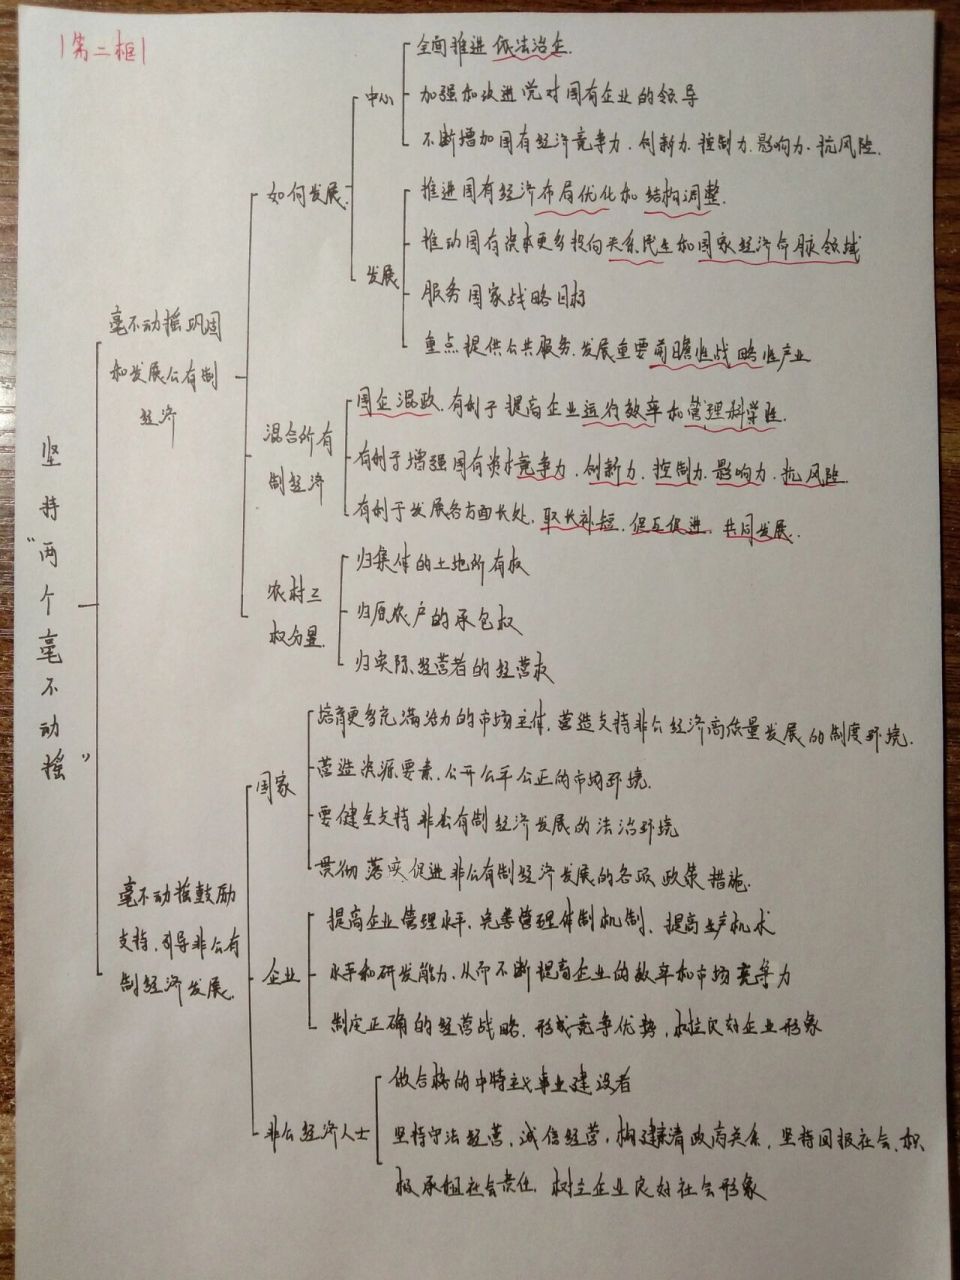 第二框
坚持“两个毫不动摇”
毫不动摇巩固
和发展公有制
经济
如何发展
中心
全面推进依法治企.
加强和改进党对国有企业的领导
不断增加国有经济竞争力.创新力.控制力.影响力.抗风险.
发展
推进国有经济布局优化和结构调整.
推动国有资本更多投向关系民生和国家经济命脉领域
服务国家战略目标
重点提供公共服务.发展重要前瞻性战略性产业
混合所有
制经济
国企混改.有利于提高企业运行效率和管理科学性.
有利于增强国有资本竞争力.创新力.控制力.影响力.抗风险.
有利于发展各方面长处,取长补短.促互促进.共同发展.
农村三
权分置.
归集体的土地所有权
归原农户的承包权
归实际经营者的经营权
毫不动摇鼓励
支持.引导非公有
制经济发展.
国家
培育更多充满活力的市场主体,营造支持非公经济高质量发展的制度环境.
营造资源要素.公开公平公正的市场环境.
要健全支持非公有制经济发展的法治环境
贯彻落实促进非公有制经济发展的各项政策措施.
企业
提高企业管理水平,完善管理体制机制、提高生产机术
水平和研发能力,从而不断提高企业的效率和市场竞争力
制定正确的经营战略.形成竞争优势,树立良好企业形象
非公经济人士
做合格的中特主义事业建设者
坚持守法经营,诚信经营,构建亲清政商关系,坚持回报社会、积
极承担社会责任.树立企业良好社会形象